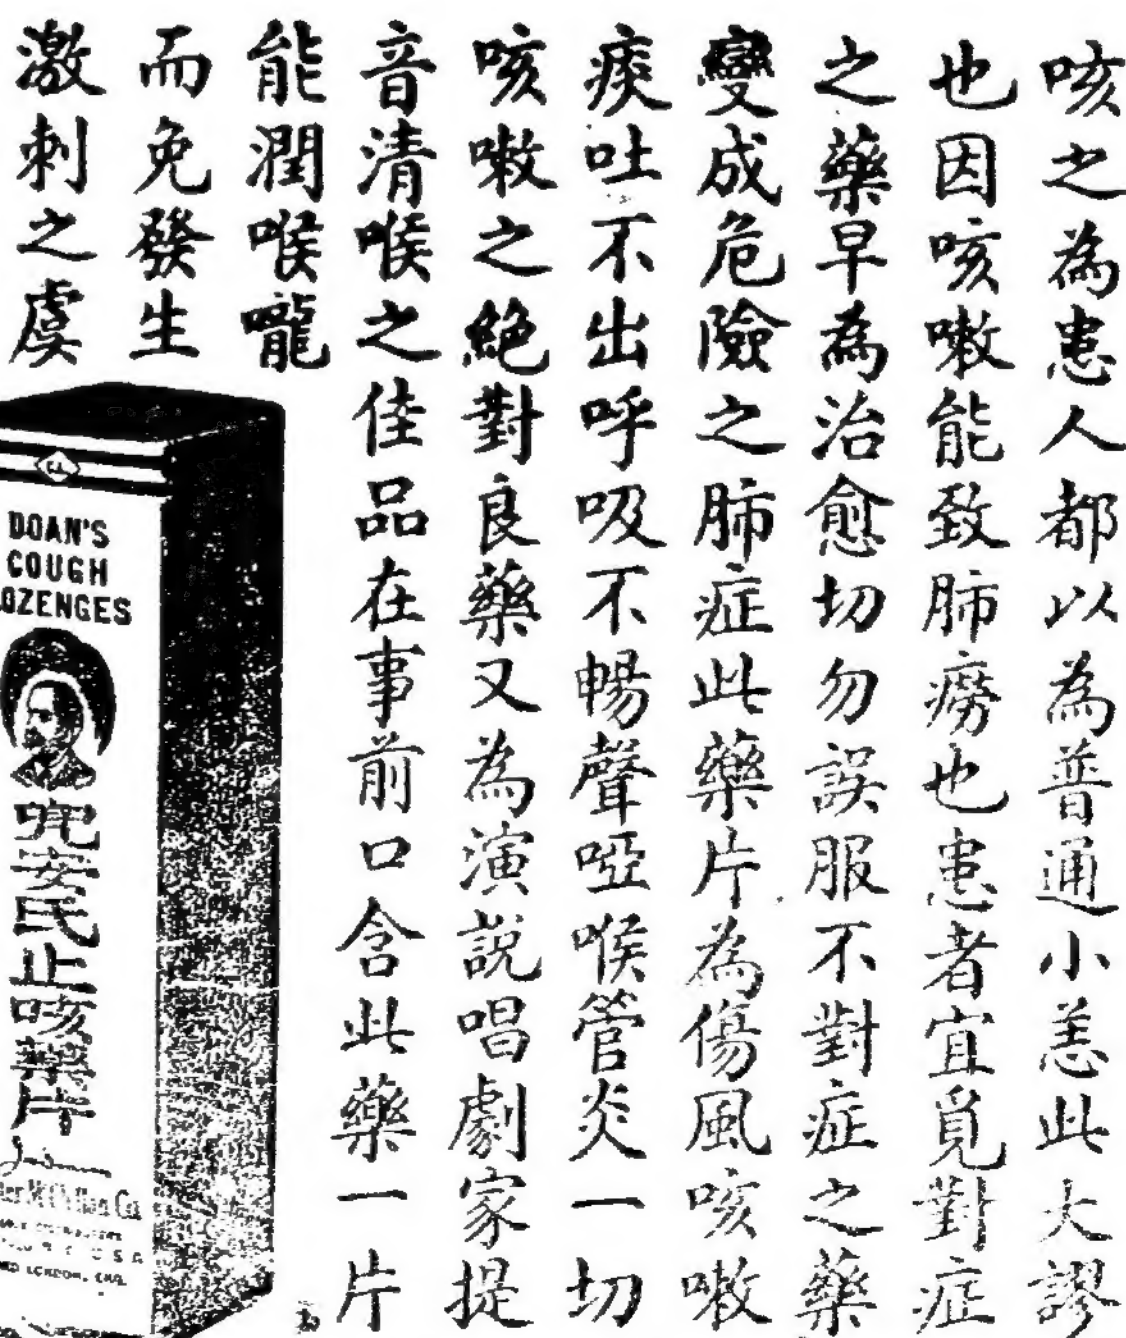 咳之為患人都以為普通小恙此大謬
也因咳嗽能致肺癆也患者宜覓對症
之藥早為治愈切勿誤服不對症之藥
變成危險之肺症此藥片為傷風咳嗽
痰吐不出呼吸不暢聲啞喉管炎一切
咳嗽之絕對良藥又為演説唱劇家提
音清喉之佳品在事前口含此藥一片
能潤喉嚨
而免發生
激刺之虞
DOAN'S
COUGH
LOZENGES
兜安氏止咳藥片